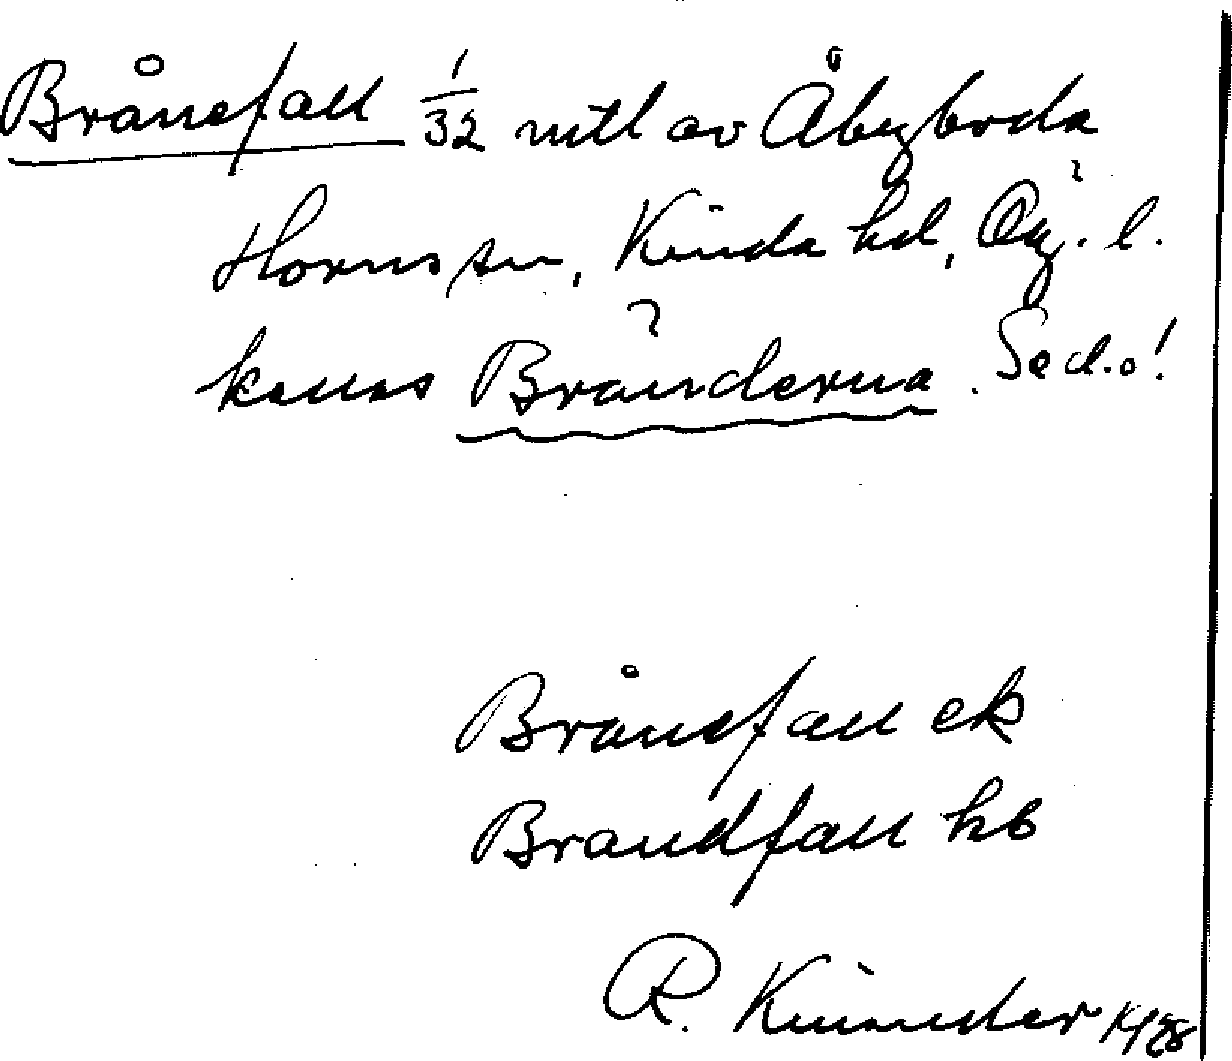 Brånefall 1/32 mtl av Åbyboda
Horns sn, Kinda hd, Ög. l.
kallas Bränderna. Se d.o!
Brånefall ek
Brandfall hb
R. Kinander